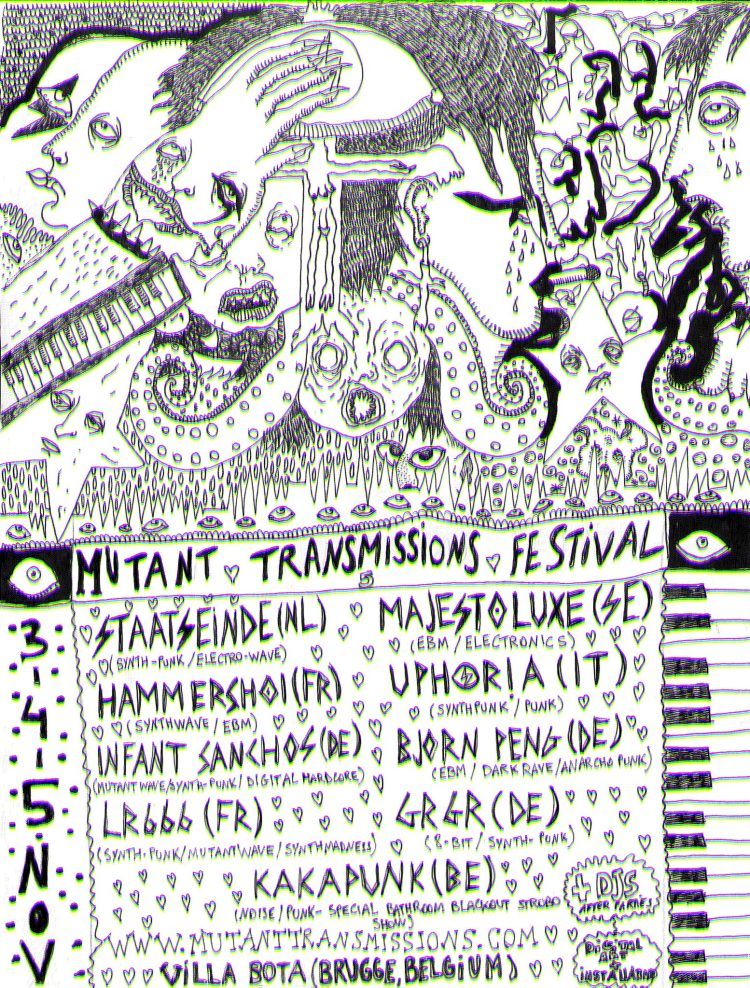 MUTANT TRANSMISSIONS FESTIVAL
5
3-4-5 NOV
STAATSEINDE (NL)
(SYNTH-PUNK/ELECTRO-WAVE)
MAJESTOLUXE (SE)
(EBM/ELECTRONICS)
HAMMERSHOI (FR)
(SYNTHWAVE/EBM)
UPHORIA (IT)
(SYNTHPUNK/PUNK)
INFANT SANCHOS (DE)
(MUTANT WAVE/SYNTH-PUNK/DIGITAL HARDCORE)
BJORN PENG (DE)
(EBM/DARK RAVE/ANARCHO PUNK)
LR666 (FR)
(SYNTH-PUNK/MUTANT WAVE/SYNTHMADNESS)
GRGR (DE)
(8-BIT/SYNTH-PUNK)
KAKAPUNK (BE)
(NOISE/PUNK-SPECIAL BATHROOM BLACKOUT STROBO
SHOW)
+ DJS
AFTER PARTIES
WWW.MUTANTTRANSMISSIONS.COM
DIGITAL
ART
VILLA BOTA (BRUGGE, BELGIUM)